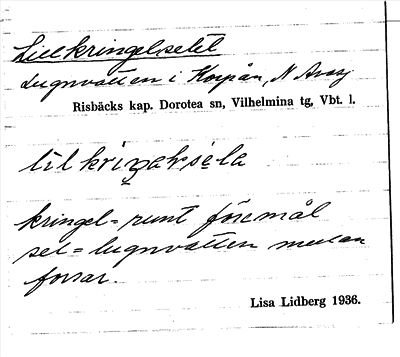 Lillkringelselet
Lugnvatten i Korpån, N Avasj
Risbäcks kap. Dorotea sn, Vilhelmina tg, Vbt. l.
lil kriŋəlsela
kringel = runt föremål
sel = lugnvatten mellan
forsar.
Lisa Lidberg 1936.